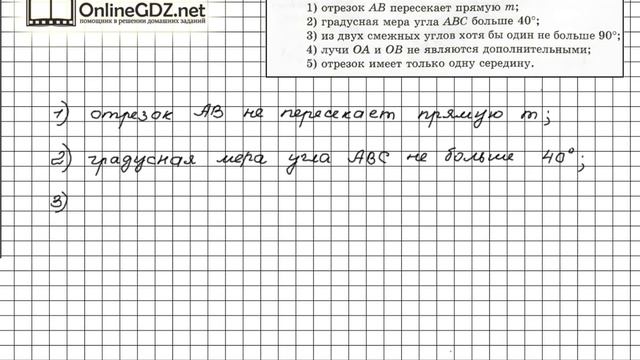 OnlineGDZ.net
помощник в решении домашних заданий
1) отрезок AB пересекает прямую m;
2) градусная мера угла ABC больше 40°;
3) из двух смежных углов хотя бы один не больше 90°;
4) лучи OA и OB не являются дополнительными;
5) отрезок имеет только одну середину.
1) отрезок AB не пересекает прямую m;
2) градусная мера угла ABC не больше 40°;
3)